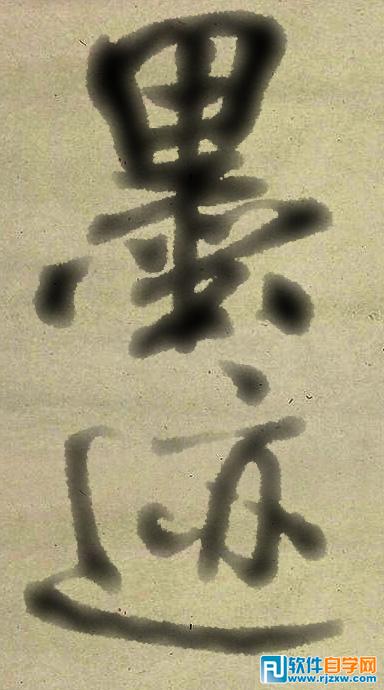 墨迹
软件自学网
www.rjzxw.com